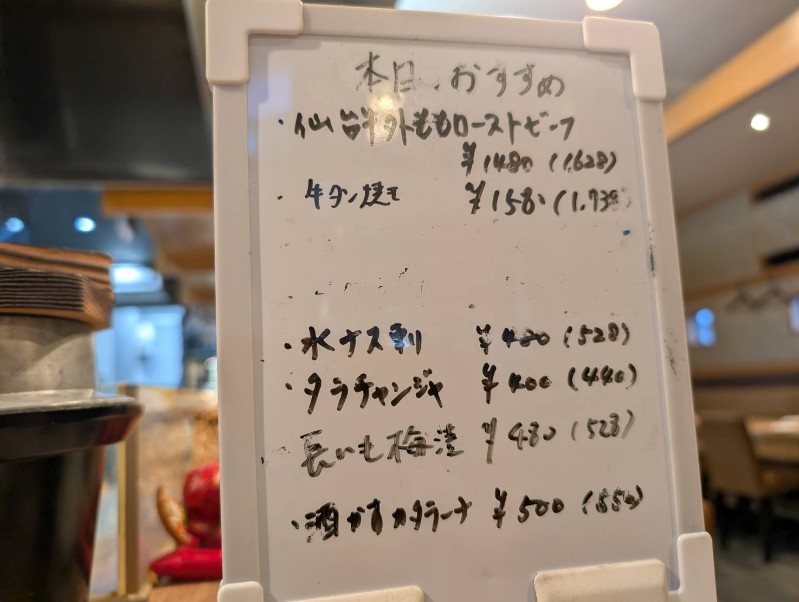 本日、おすすめ
・仙台牛外ももローストビーフ
¥1480 (1,628)
・牛タン焼き ¥1580 (1,738
・水ナス刺 ¥480 (528)
・タラチャンジャ ¥400 (440)
長いも梅漬 ¥480 (528)
・酒かすカタラーナ ¥500 (550)